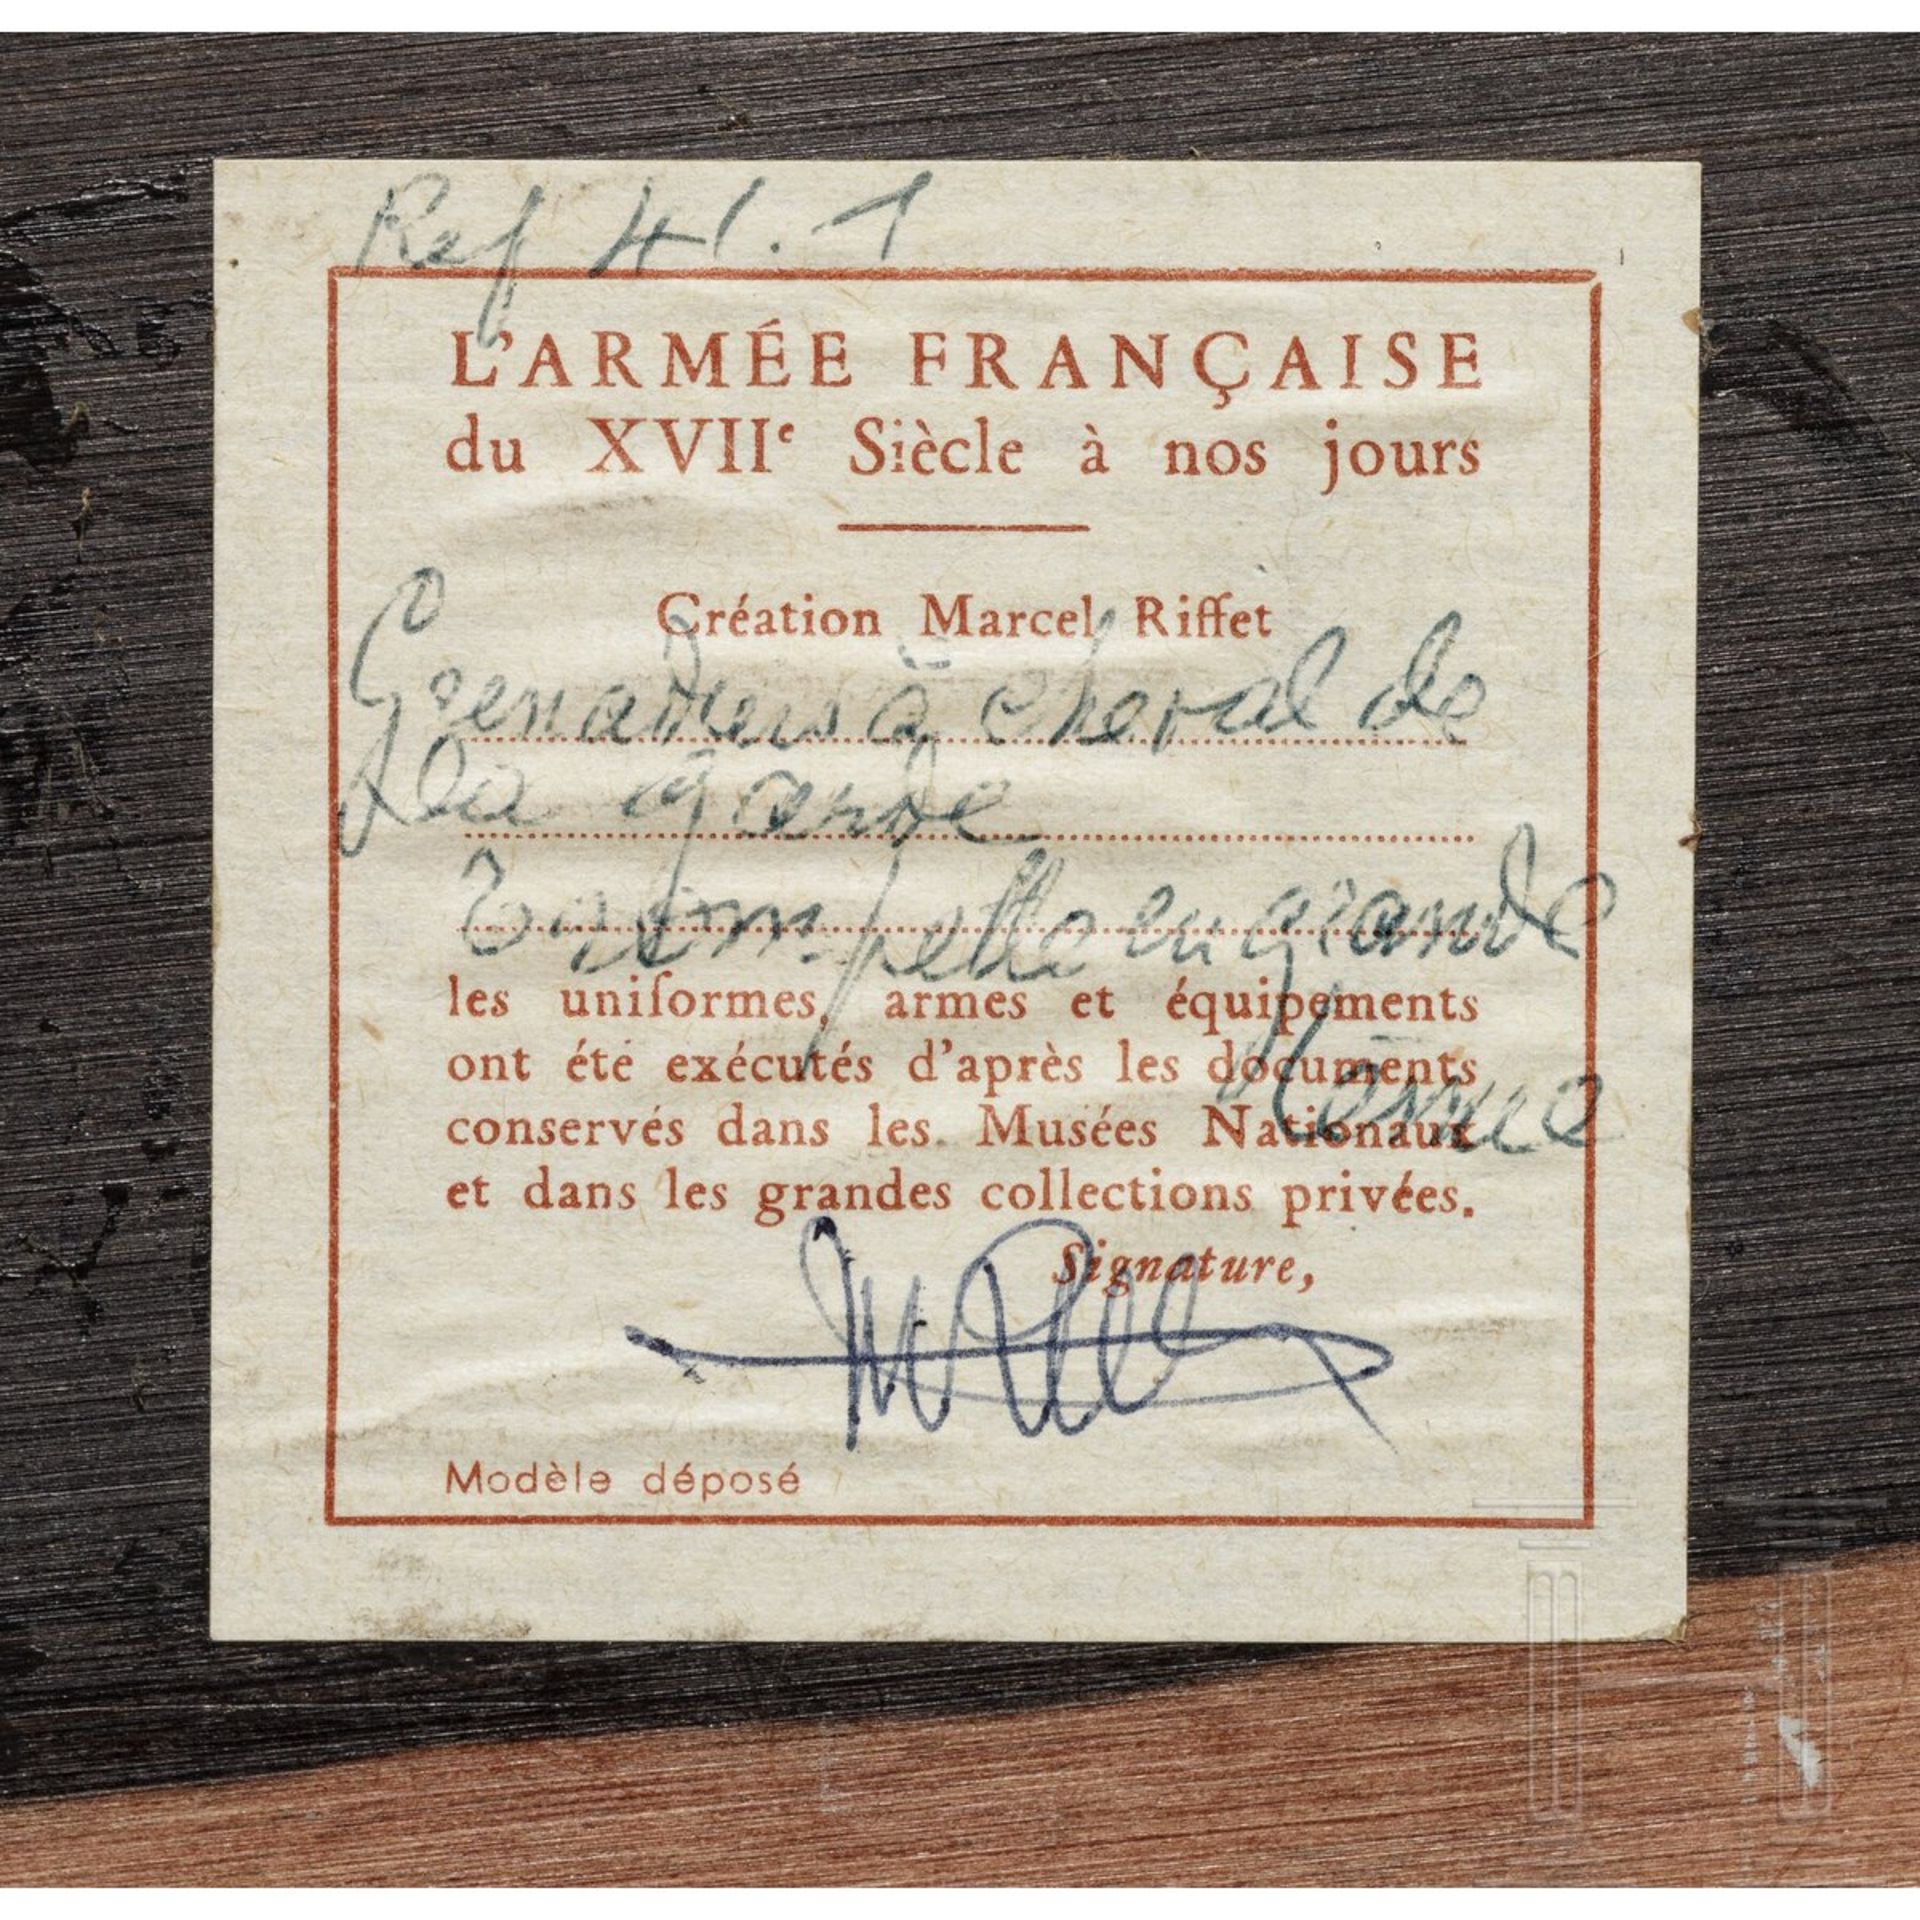 Ref 41.1
L'ARMÉE FRANÇAISE
du XVIIe Siècle à nos jours
Création Marcel Riffet
Grenadiers à cheval de
la garde
Trompette en grande
tenue
les uniformes, armes et équipements
ont été exécutés d'après les documents
conservés dans les Musées Nationaux
et dans les grandes collections privées.
Signature,
Modèle déposé